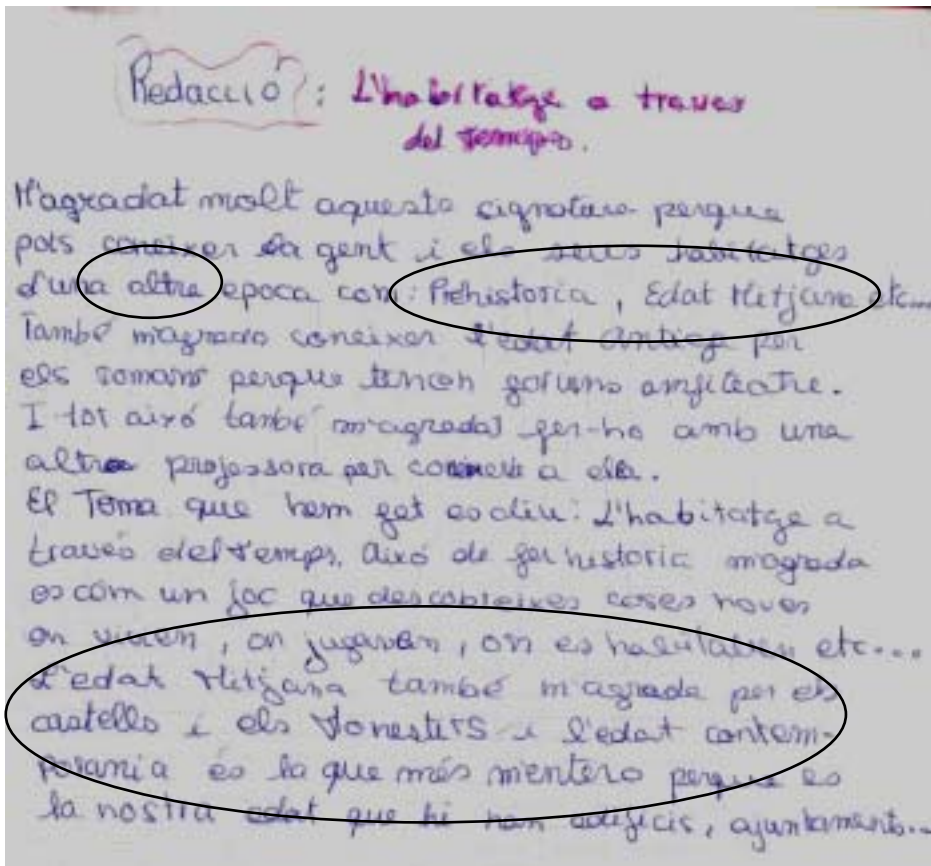 Redacció: L'habitatge a traves
del temps.
M'agradat molt aquesta signatura perque
pots coneixer la gent i els seus habitatges
d'una altre epoca com: Prehistoria, Edat Mitjana etc...
També m'agrada coneixer l'edat Antiga per
els romans perque tenen amfiteatre.
I tot aixó també m'agradat fer-ho amb una
altre professora per a ella.
El Tema que hem fet es diu: L'habitatge a
través del temps. Aixó de fer historia magrada
es com un joc que descobreixes coses noves
on vivien, on jugaven, on es etc...
L'edat Mitjana també m'agrada per els
castells i els Monestirs i l'edat contem-
porania és la que més mentero perque es
la nostra edat que hi han edificis, ajuntaments...